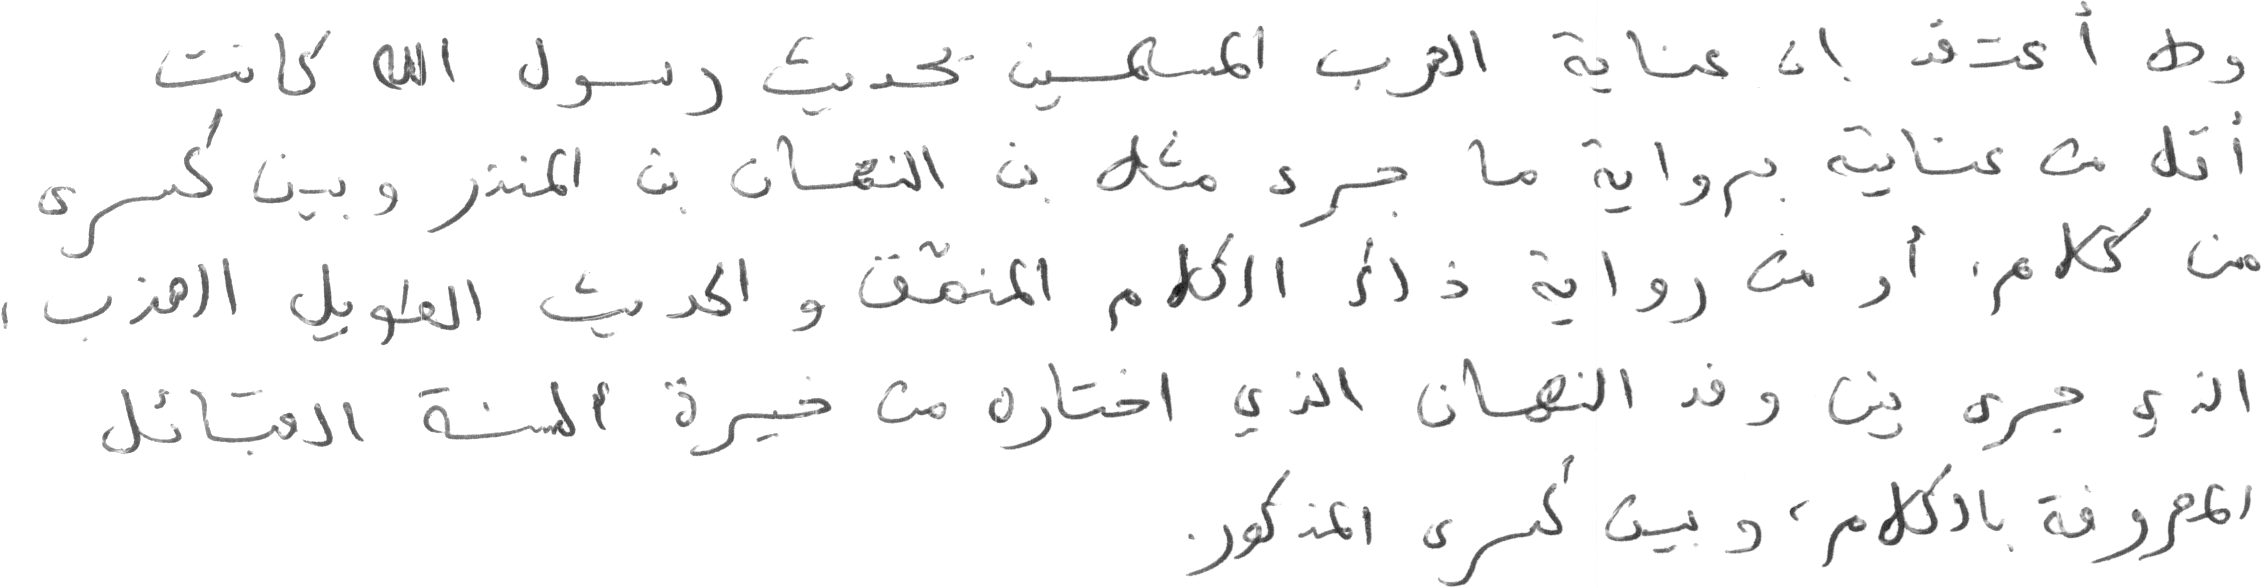 ولا أعتقد ان عناية العرب المسلمين بحديث رسول الله كانت
أقل من عنايته برواية ما جرى مثلا بن النعمان بن المنذر وبين كسرى
من كلام، أو من رواية ذلك الكلام المنمّق والحديث الطويل العذب،
الذي جرى بين وفد النعمان الذي اختاره من خيرة ألسنة القبائل
المعروفة بالكلام، وبين كسرى المذكور.